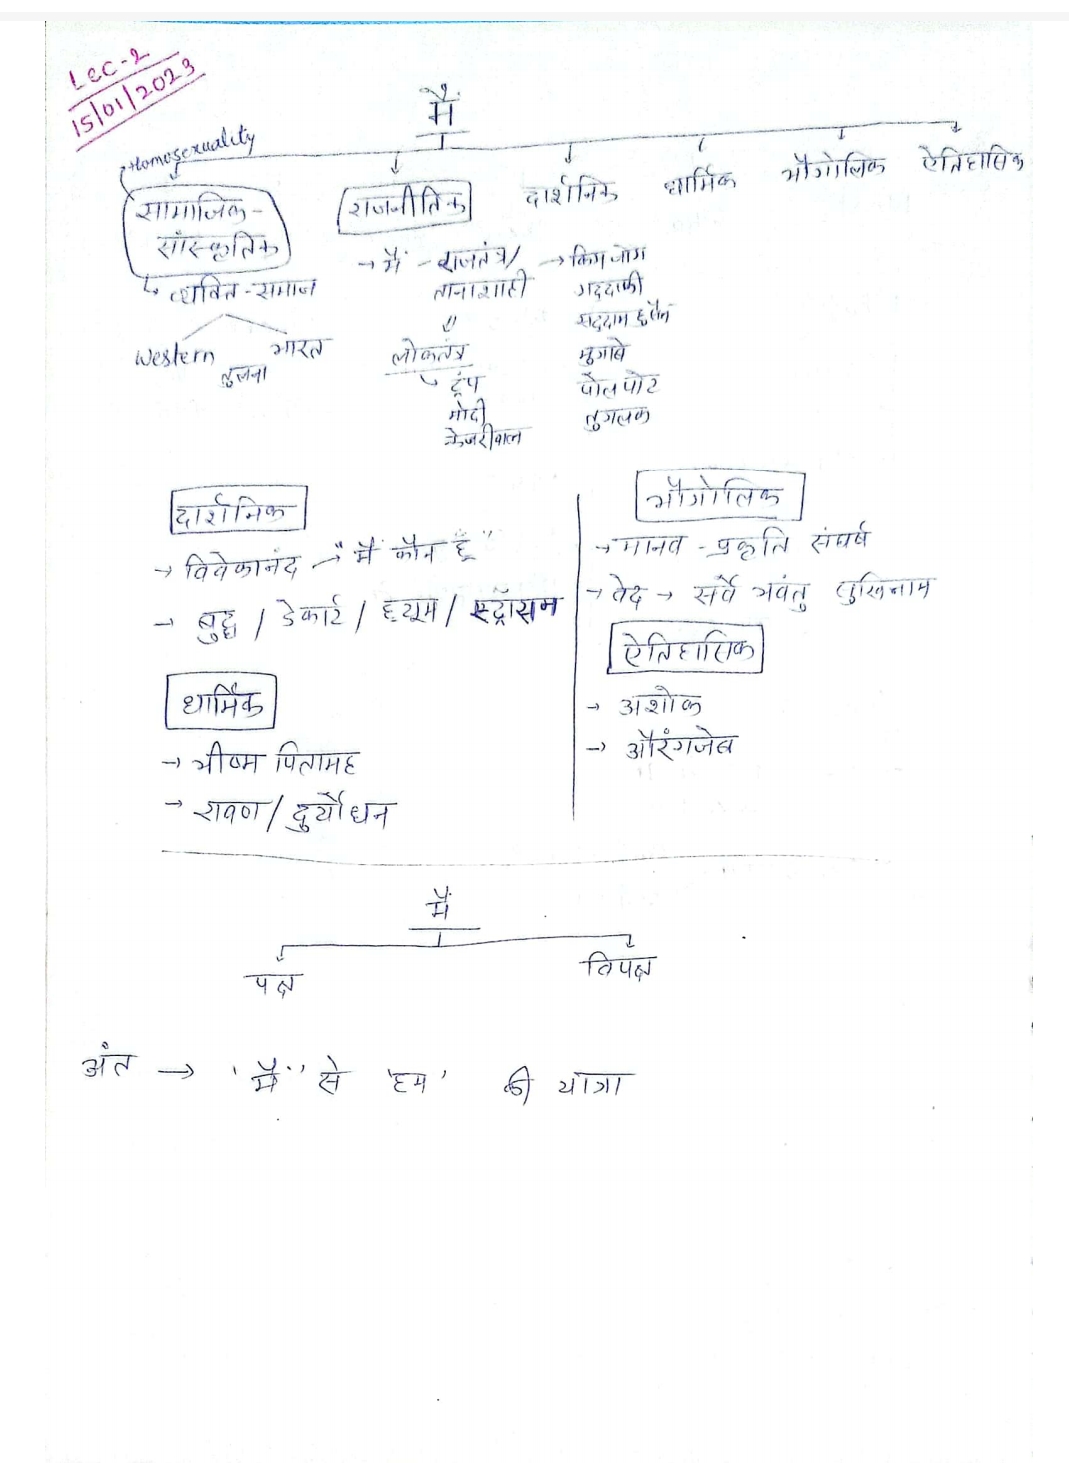 Lec-2
15/01/2023
मैं
Homosexuality
सामाजिक-
सांस्कृतिक
राजनीतिक
दार्शनिक
धार्मिक
भौगोलिक
ऐतिहासिक
↳ व्यक्ति-समाज
Western
भारत
तुलना
→ मैं - राजतंत्र/
तानाशाही
⇓
लोकतंत्र
↳ ट्रंप
मोदी
केजरीवाल
→ किम जोंग
गद्दाफी
सद्दाम हुसैन
मुगाबे
पोल पोट
तुगलक
दार्शनिक
→ विवेकानंद → "मैं कौन हूँ"
→ बुद्ध / डेकार्ट / ह्यूम / स्ट्रॉसन
धार्मिक
→ भीष्म पितामह
→ रावण / दुर्योधन
भौगोलिक
→ मानव - प्रकृति संघर्ष
→ वेद → सर्वे भवंतु सुखिनाम
ऐतिहासिक
→ अशोक
→ औरंगजेब
मैं
पक्ष
विपक्ष
अंत → 'मैं' से 'हम' की यात्रा